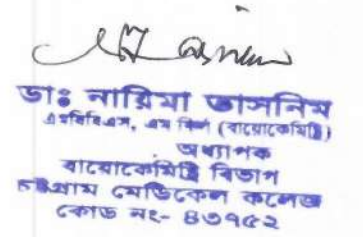 ডাঃ নারিমা তাসনিম
এমবিবিএস, এম ফিল (বায়োকেমিষ্ট্রি)
অধ্যাপক
বায়োকেমিষ্ট্রি বিভাগ
চট্টগ্রাম মেডিকেল কলেজ
কোড নং- ৪৩৭৫২